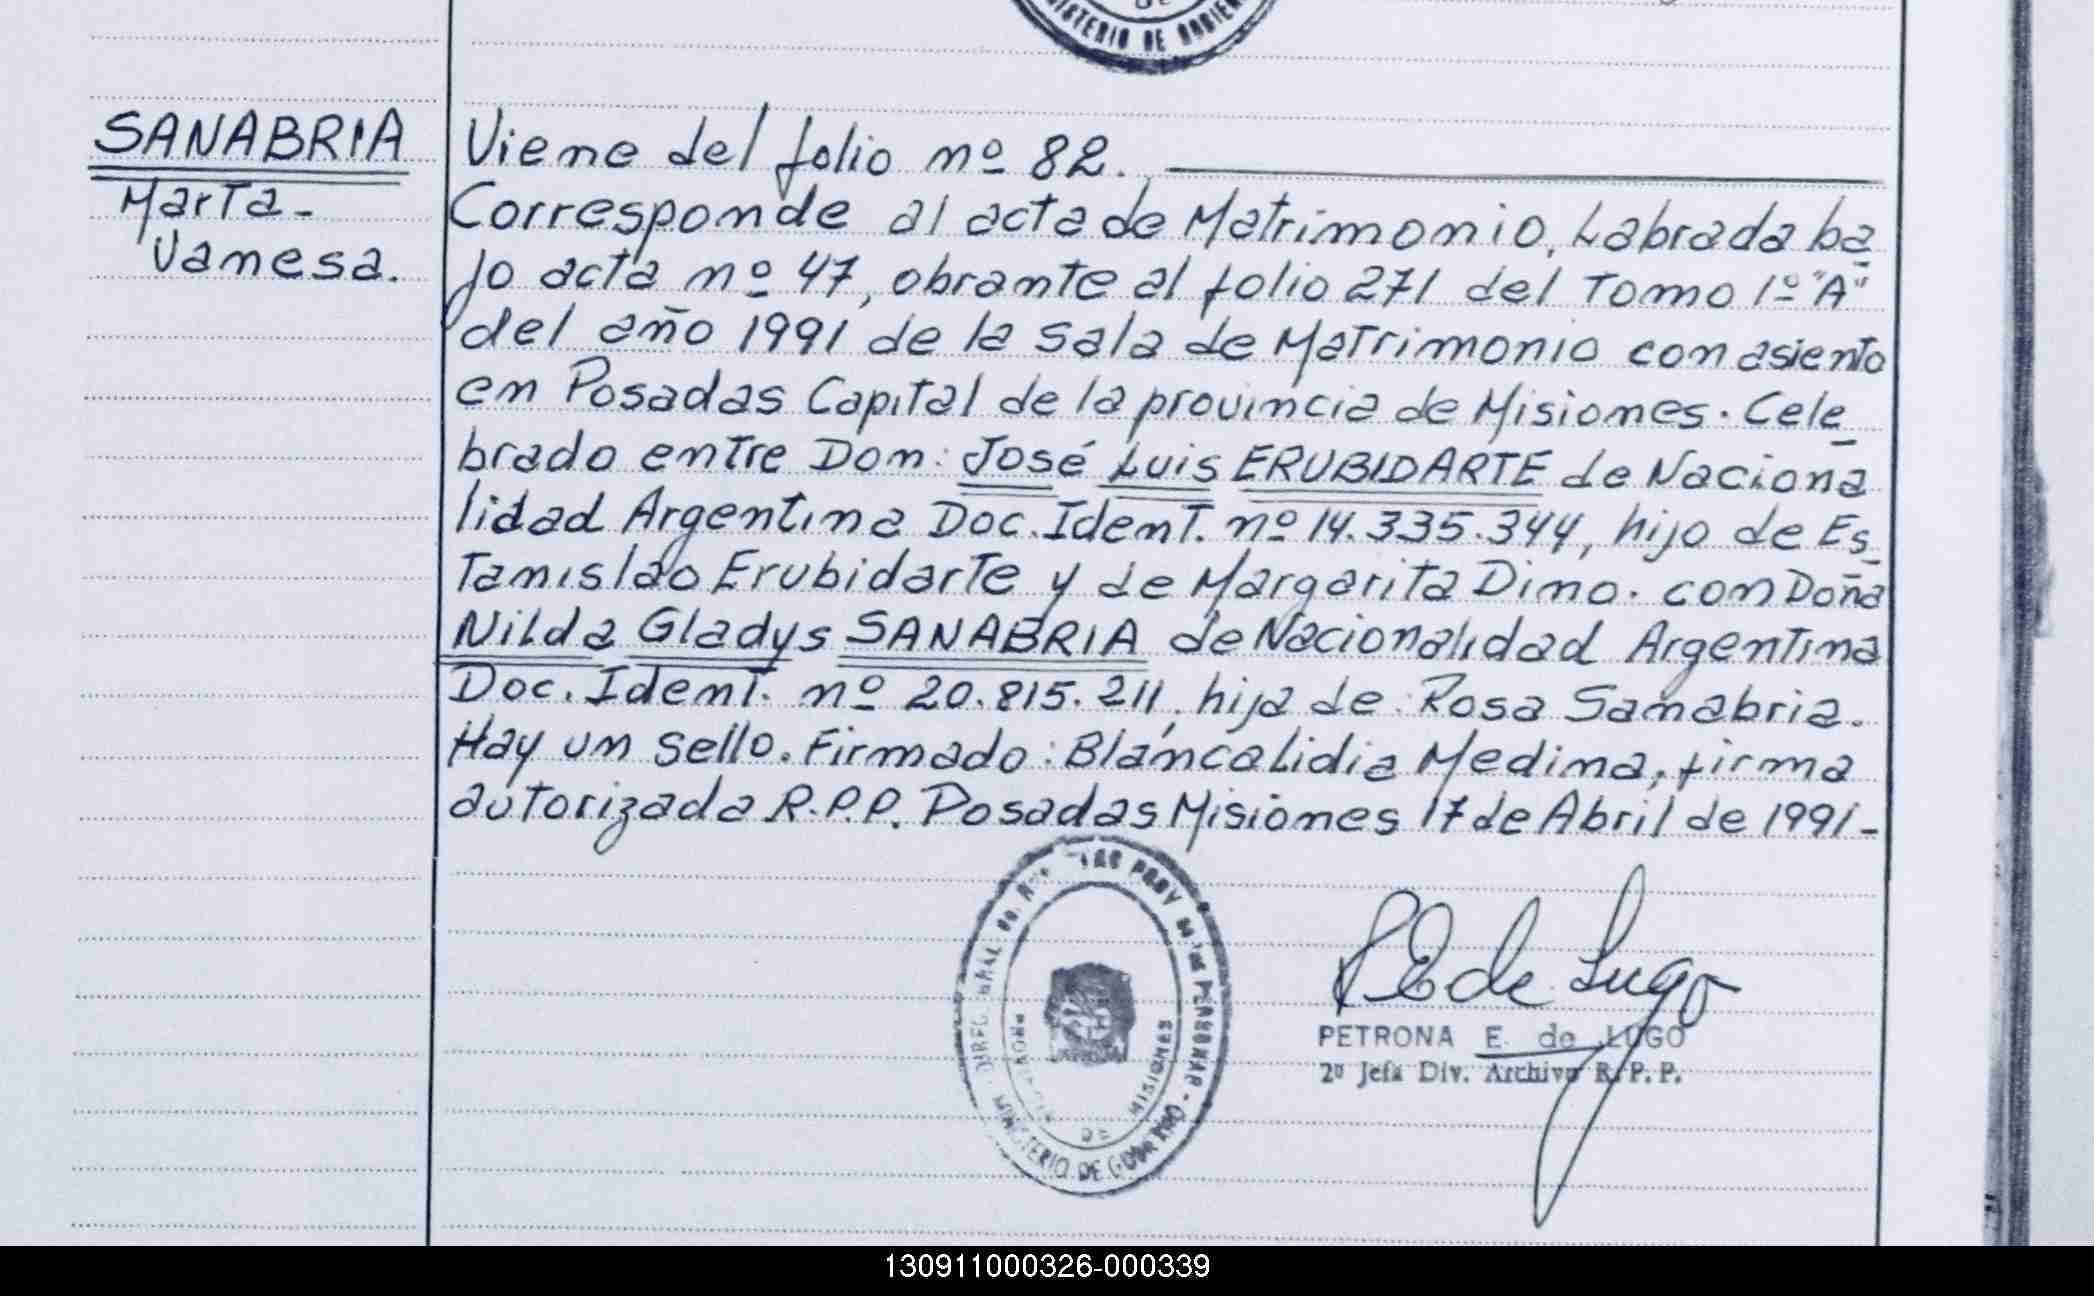 MINISTERIO DE GOBIER
DE
SANABRIA
Marta-
Vanesa.
Viene del folio nº 82.
Corresponde al acta de Matrimonio, Labrada ba
jo acta nº 47, obrante al folio 271 del Tomo 1º "A"
del año 1991 de la sala de Matrimonio con asiento
en Posadas Capital de la provincia de Misiones. Cele_
brado entre Don: José Luis ERUBIDARTE de Naciona
lidad Argentina Doc. Ident. nº 14.335.344, hijo de Es_
tanislao Erubidarte y de Margarita Dimo. con Doña
Nilda Gladys SANABRIA de Nacionalidad Argentina
Doc. Ident. nº 20.815.211, hija de Rosa Sanabria.
Hay un sello. Firmado: Blanca Lidia Medina, firma
autorizada R.P.P. Posadas Misiones 17 de Abril de 1991-
PROV DE LAS PERSONAS
MINISTERIO DE
DE MISIONES
P E de Lugo
PETRONA E. de LUGO
2º Jefa Div. Archivo R. P. P.
130911000326-000339